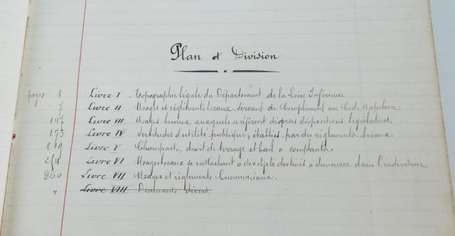 Plan et Division
pages 1 Livre I. Topographie légale du Département de la Loire Inférieure
Livre II Usages et règlements locaux servant de Complément au Code Napoléon
Livre III Usages locaux auxquels se réfèrent diverses dispositions législatives
193 Livre IV Servitudes d'utilité publique, établies par des règlements locaux
Livre V Complant, droit de terrage et bail à complant
Livre VI Usages locaux se rattachant à des objets destinés à
Livre VII Usages et règlements Commerciaux
Livre VIII